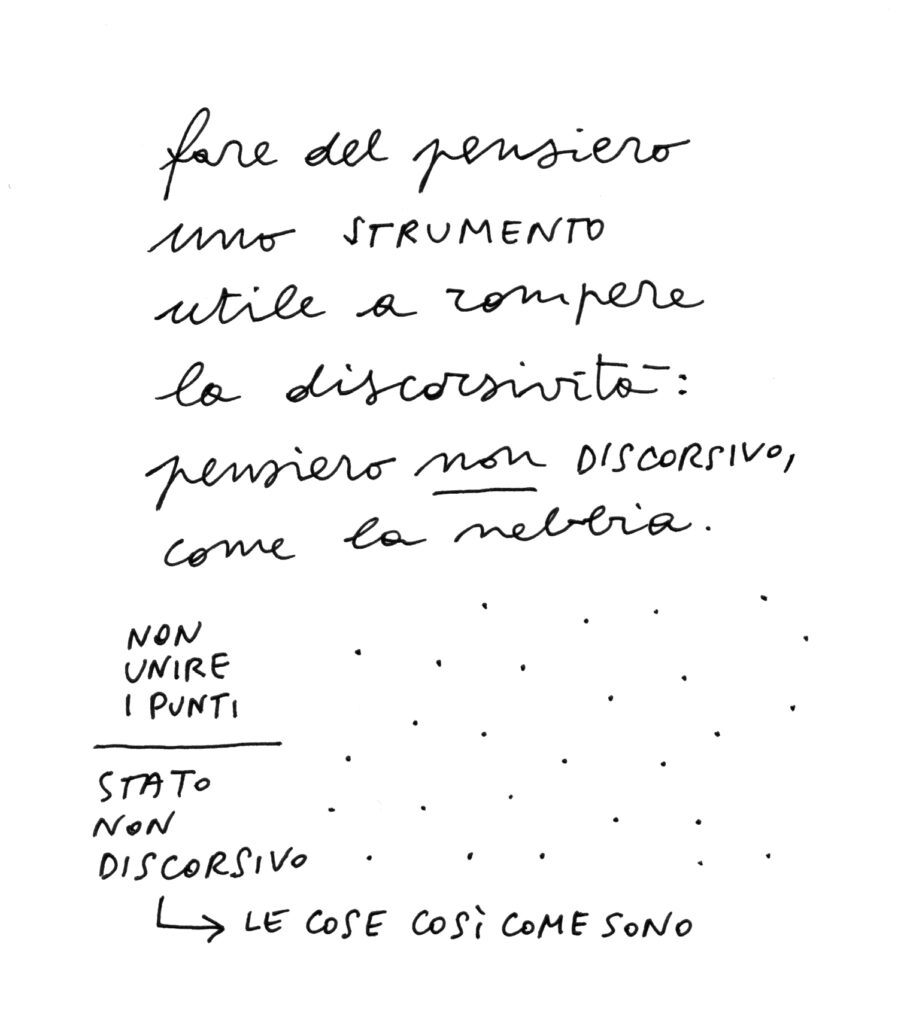 fare del pensiero
uno STRUMENTO
utile a rompere
la discorsività:
pensiero non DISCORSIVO,
come la nebbia.
NON
UNIRE
I PUNTI
STATO
NON
DISCORSIVO
LE COSE COSÌ COME SONO